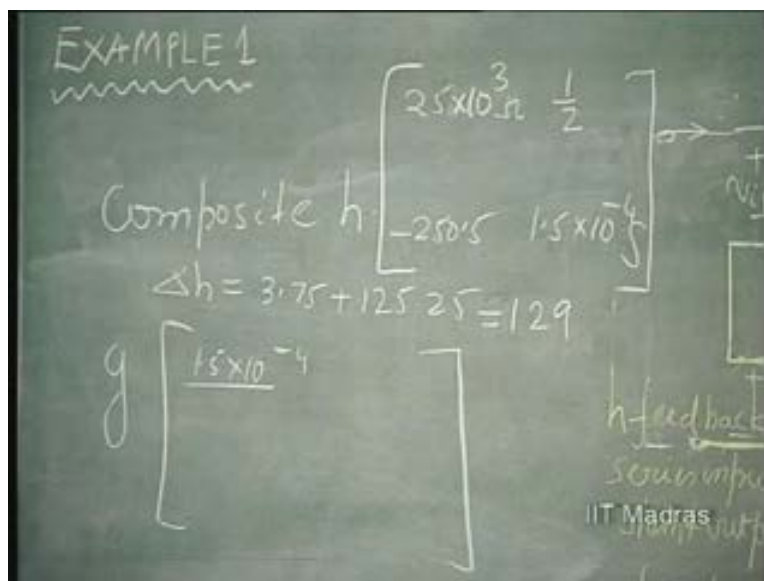 EXAMPLE 1
Composite h
25×10³Ω 1/2
-250.5 1.5×10⁻⁴ ℧
Δh = 3.75 + 125 25 = 129
g
1.5×10⁻⁴
+
h-feedback
series inpu
shunt outp
IIT Madras